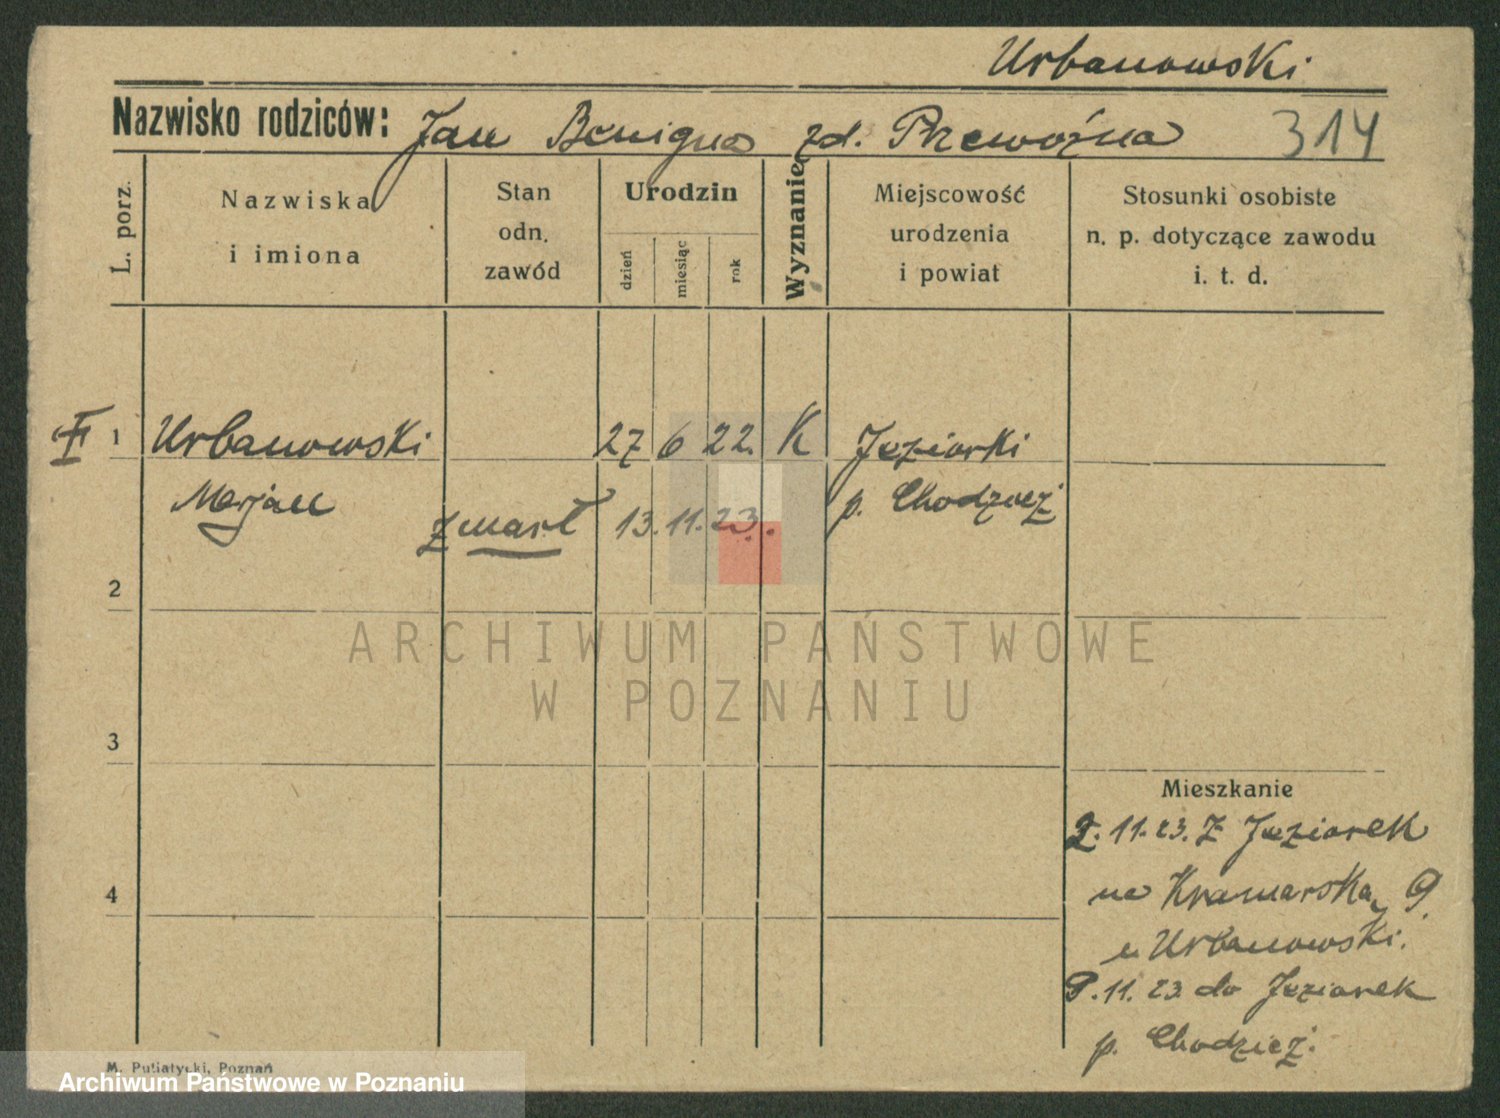 Urbanowski
Nazwisko rodziców: Jan Benigna zd. Przewoźna 314
L. porz.
Nazwiska
i imiona
Stan
odn.
zawód
Urodzin
dzień
miesiąc
rok
Wyznanie
Miejscowość
urodzenia
i powiat
Stosunki osobiste
n. p. dotyczące zawodu
i. t. d.
1 Urbanowski 27 6 22. K Jeziorki
Marjan p. Chodzież
zmarł 13. 11. 23.
2
ARCHIWUM PAŃSTWOWE
W POZNANIU
3
Mieszkanie
2. 11. 23. Z Jeziorek
na Kramarską 9.
u Urbanowski.
11. 23 do Jeziorek
p. Chodzież.
4
M. Putiatycki, Poznań
Archiwum Państwowe w Poznaniu